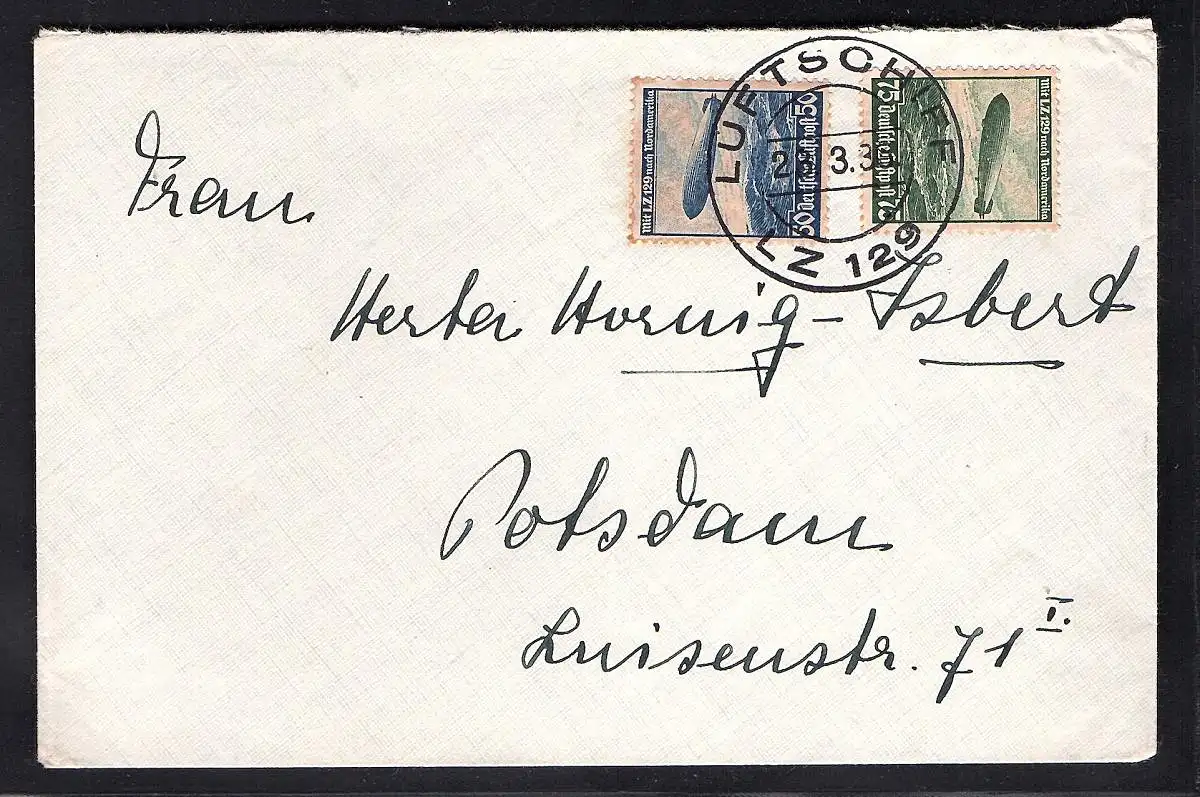 Mit LZ 129 nach Nordamerika
50 Deutsche Luftpost 50
75 Deutsche Luftpost 75
Mit LZ 129 nach Nordamerika
LUFTSCHIFF
3.3
LZ 129
Frau
Herta Hornig - Isbert
Potsdam
Luisenstr. 71 I.